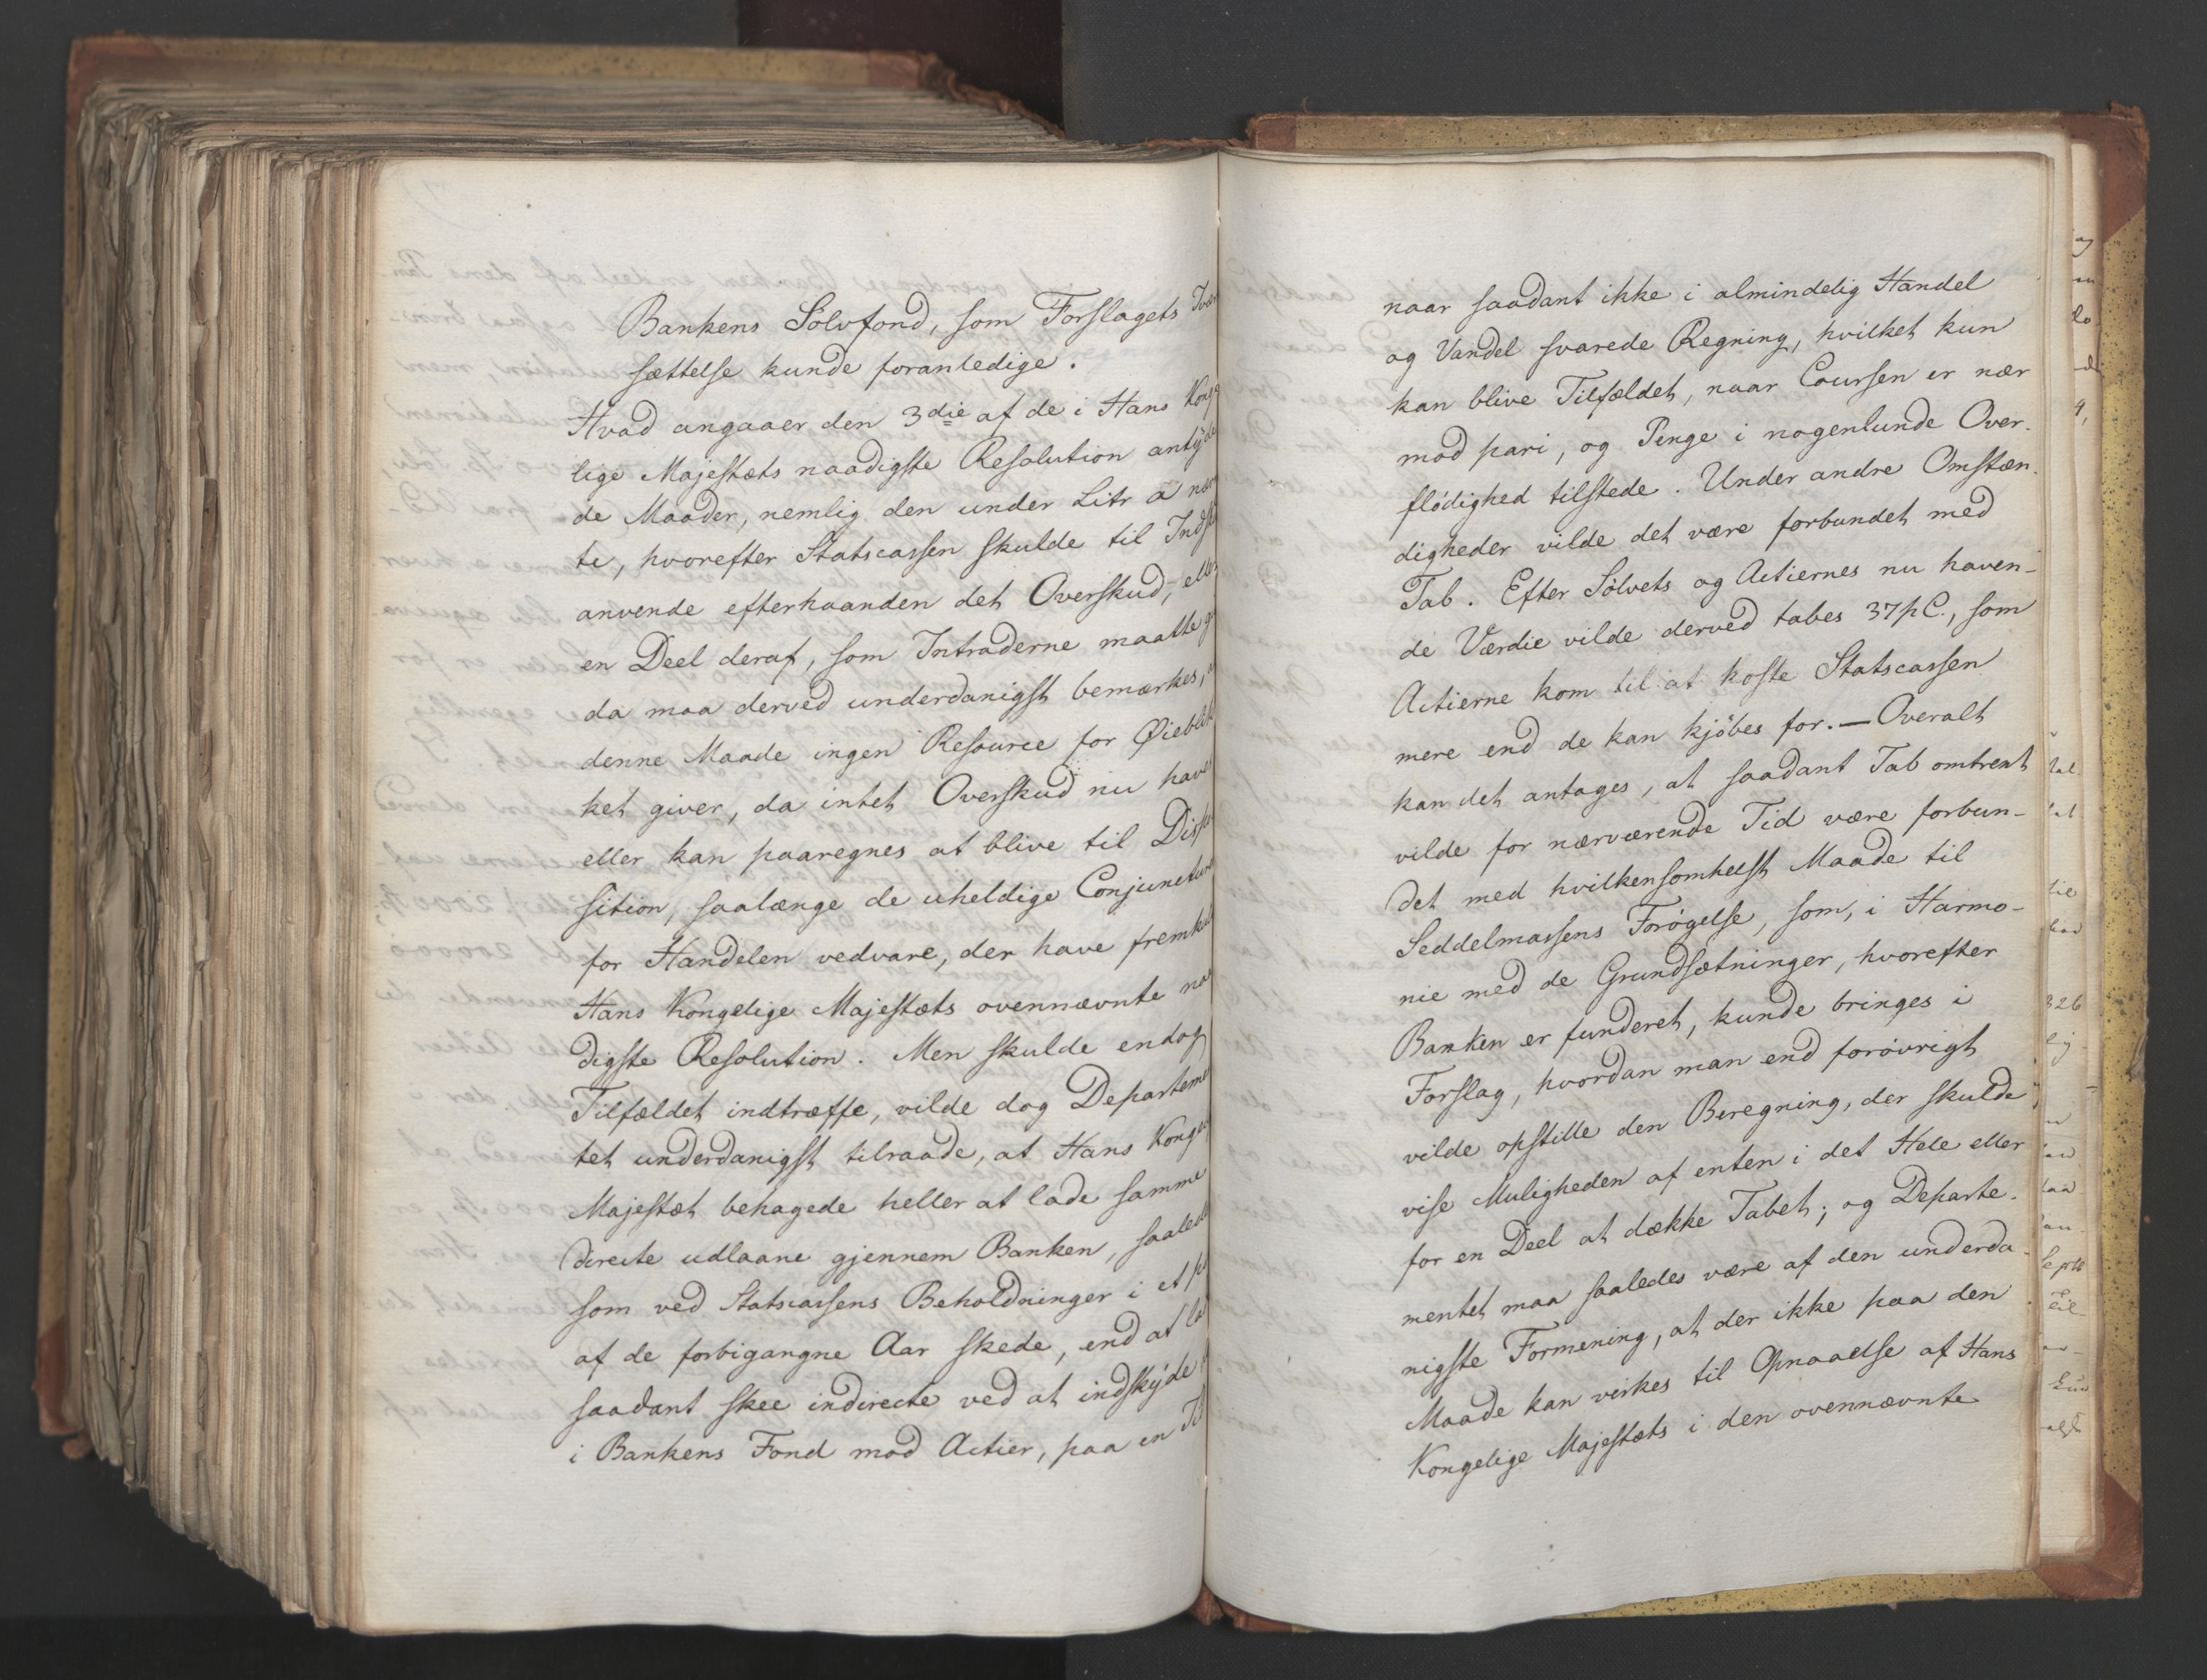 Bankens Sølvfond, som Forslagets
sættelse kunde foranledige.
Hvad angaaer den 3die af de i Hans Kong
lige Majestæts naadigste Resolution antyde
de Maader, nemlig den under Litr a næv
te, hvorefter Statscassen skulde til Indsk
anvende efterhaanden det Overskud, eller
en Deel deraf, som Intraderne maatte g
da maa derved underdanigst bemærkes, a
denne Maade ingen Resource for Øieblik
ket giver, da intet Overskud nu haves
eller kan paaregnes at blive til Dispo
sition, saalænge de uheldige Conjuncture
for Handelen vedvare, der have fremkal
Hans Kongelige Majestæts ovennævnte naa
digste Resolution. Men skulde endog
Tilfældet indtræffe, vilde dog Departeme
tet underdanigst tilraade, at Hans Konge
Majestæt behagede heller at lade samme
directe udlaane gjennem Banken, saalede
som ved Statscassens Beholdninger i et p
af de forbigangne Aar skede, end at la
saadant skee indirecte ved at indskyde
i Bankens Fond mod Actier, paa en Ti
naar saadant ikke i almindelig Handel
og Vandel svarede Regning, hvilket kun
kan blive Tilfældet, naar Coursen er nær
mod pari, og Penge i nogenlunde Over-
flødighed tilstede. Under andre Omstæn-
digheder vilde det være forbundet med
Tab. Efter Sølvets og Actiernes nu haven-
de Værdie vilde derved tabes 37 pC., som
Actierne kom til at koste Statscassen
mere end de kan kjøbes for. — Overalt
kan det antages, at saadant Tab omtrent
vilde for nærværende Tid være forbun-
det med hvilkensomhelst Maade til
Seddelmassens Forøgelse, som, i Harmo-
nie med de Grundsætninger, hvorefter
Banken er funderet, kunde bringes i
Forslag, hvordan man end forøvrigt
vilde opstille den Beregning, der skulde
vise Muligheden af enten i det Hele eller
for en Deel at dække Tabet; og Departe-
mentet maa saaledes være af den underda-
nigste Formening, at der ikke paa den
Maade kan virkes til Opnaaelse af Hans
Kongelige Majestæts i den ovennævnte